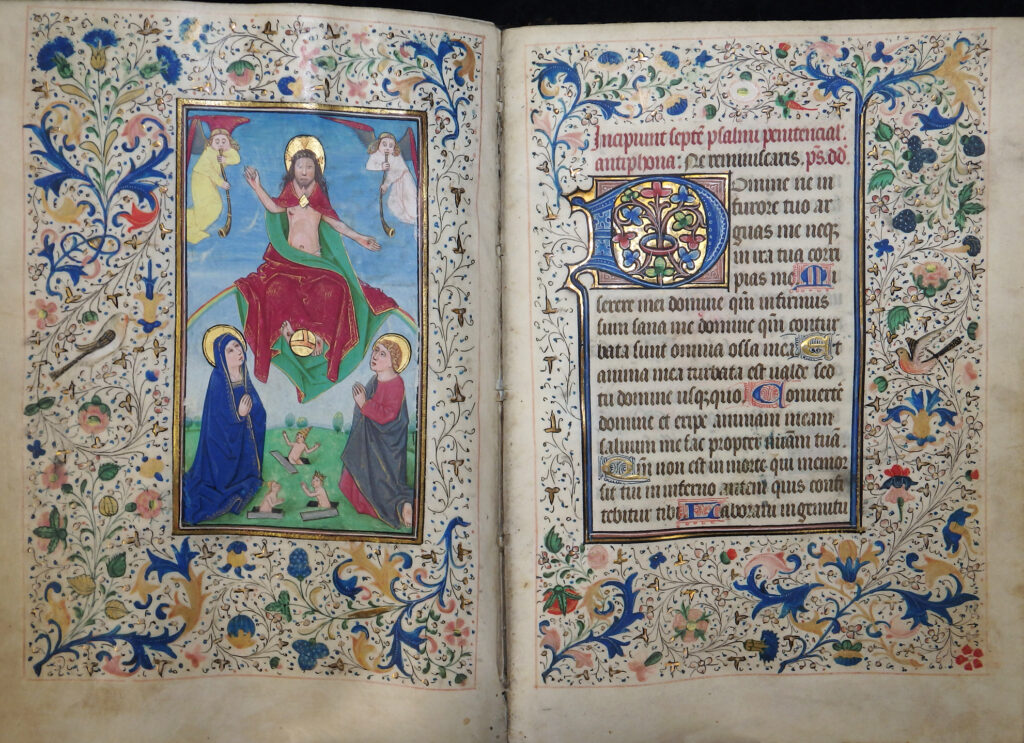 Incipiunt septē psalmi penitencial.
antiphona: Ne reminiscaris, p̄s. dd̄.
Domine ne in
furore tuo ar
guas me neqȝ
in ira tua corri
pias me Mi
serere mei domine qm̄ infirmus
sum sana me domine qm̄ contur
bata sunt omnia ossa mea Et
anima mea turbata est ualde sed
tu domine usqȝquo Conuerte
domine et eripe animam meam
saluum me fac propter m̄iam tuā
Qm̄ non est in morte qui memor
sit tui in inferno autem quis confi
tebitur tibi Laboraui in gemitu